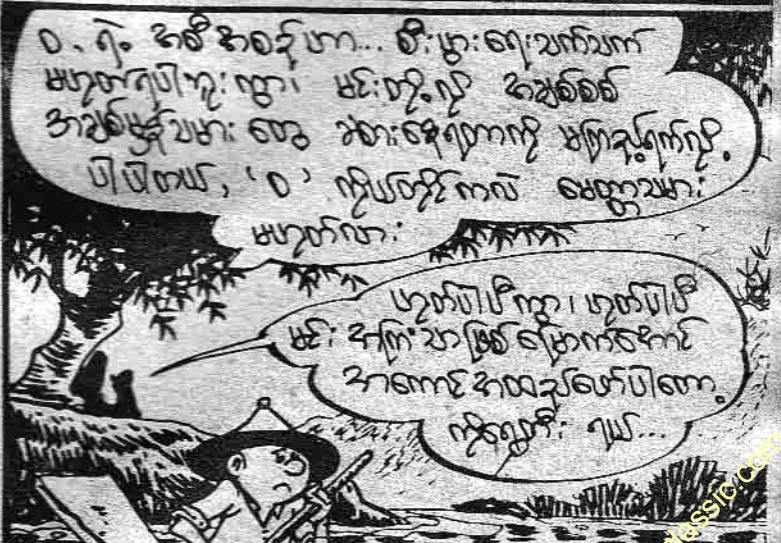 ဝ ရဲ့ အစီအစဉ်ဟာ... စီးပွားရေးသက်သက်
မဟုတ်ရပါဘူးကွာ၊ မင်းတို့လို အချစ်စစ်
အချစ်မှန်သမား တွေ ခံစားနေရတာကို မကြည့်ရက်လို့
ပါပါတယ်, 'ဝ' ကိုယ်တိုင်ကလဲ မေတ္တာသမား
မဟုတ်လား
ဟုတ်ပါပီကွာ၊ ဟုတ်ပါပီ
မင်း အကြံသာ မြောက်အောင်
အကောင်အထည်ဖော်ပါတော့
ကို ရယ်...
lassic.com